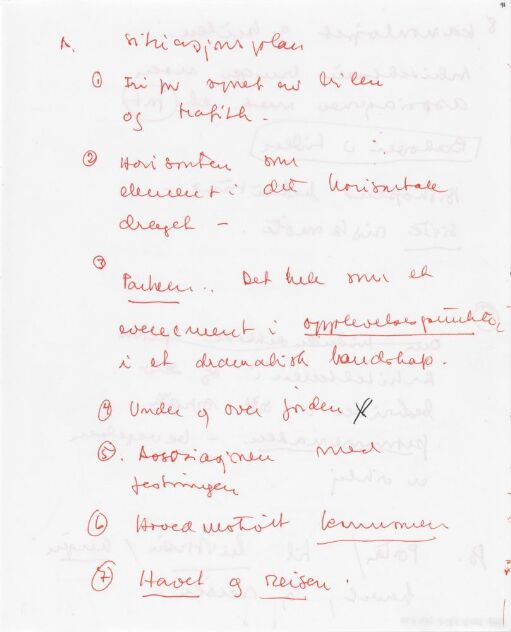 A. Situasjonsplan
① Fri for synet av bilen
og trafikk.
② Horisonten som
element i det horisontale
draget –
③
Parken.. Det hele som et
i opplevelsespunkter
i et dramatisk landskap.
④ Under og over jorden
⑤. Assosiasjonen med
festningen
⑥ Hovedmotivet
⑦ Havet og reisen.